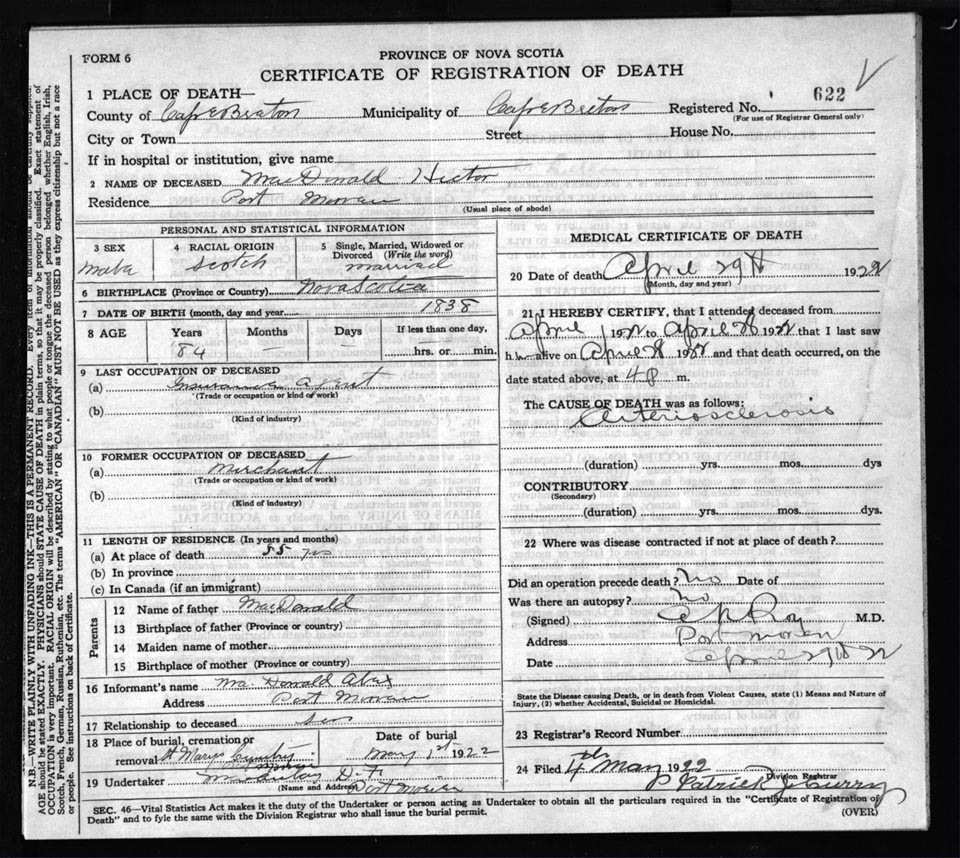 FORM 6
PROVINCE OF NOVA SCOTIA
CERTIFICATE OF REGISTRATION OF DEATH
1 PLACE OF DEATH—
County of Cape Breton Municipality of Cape Breton Registered No. 622
(For use of Registrar General only)
City or Town Street House No.
If in hospital or institution, give name
2 NAME OF DECEASED MacDonald Hector
Residence Port Morien
(Usual place of abode)
PERSONAL AND STATISTICAL INFORMATION
3 SEX 4 RACIAL ORIGIN 5 Single, Married, Widowed or
Divorced (Write the word)
Male Scotch married
6 BIRTHPLACE (Province or Country) Nova Scotia
7 DATE OF BIRTH (month, day and year) 1838
8 AGE Years Months Days If less than one day,
84 hrs. or min.
9 LAST OCCUPATION OF DECEASED
(a) Insurance agent
(Trade or occupation or kind of work)
(b)
(Kind of industry)
10 FORMER OCCUPATION OF DECEASED
(a) Merchant
(Trade or occupation or kind of work)
(b)
(Kind of industry)
11 LENGTH OF RESIDENCE (In years and months)
(a) At place of death 55 yrs
(b) In province
(c) In Canada (if an immigrant)
Parents
12 Name of father MacDonald
13 Birthplace of father (Province or country)
14 Maiden name of mother
15 Birthplace of mother (Province or country)
16 Informant's name MacDonald Alex
Address Port Morien
17 Relationship to deceased son
18 Place of burial, cremation or Date of burial
removal St Marys Cemetery May 1st 1922
19 Undertaker D. F.
(Name and Address) Port Morien
MEDICAL CERTIFICATE OF DEATH
20 Date of death April 29th 1922
(Month, day and year)
21 I HEREBY CERTIFY, that I attended deceased from
April 1922 to April 28 1922 that I last saw
h alive on April 28 1922 and that death occurred, on the
date stated above, at 4 P m.
The CAUSE OF DEATH was as follows:
Arteriosclerosis
(duration) yrs. mos. dys
CONTRIBUTORY
(Secondary)
(duration) yrs. mos. dys.
22 Where was disease contracted if not at place of death?
Did an operation precede death? No Date of
Was there an autopsy? No
(Signed) Roy M.D.
Address Port Morien
Date April 29th 22
State the Disease causing Death, or in death from Violent Causes, state (1) Means and Nature of
Injury, (2) whether Accidental, Suicidal or Homicidal.
23 Registrar's Record Number
24 Filed 4th May 1922
Patrick J Curry
Division Registrar
SEC. 46—Vital Statistics Act makes it the duty of the Undertaker or person acting as Undertaker to obtain all the particulars required in the "Certificate of Registration of
Death" and to fyle the same with the Division Registrar who shall issue the burial permit.
(OVER)
N.B.—WRITE PLAINLY WITH UNFADING INK—THIS IS A PERMANENT RECORD. Every item of information should be carefully supplied.
AGE should be stated EXACTLY. PHYSICIANS should STATE CAUSE OF DEATH in plain terms, so that it may be properly classified. Exact statement of
OCCUPATION is very important. RACIAL ORIGIN will be described by stating to what people or tongue the deceased person belonged whether English, Irish,
Scotch, French, German, Russian, Ruthenian, etc. The terms "AMERICAN" OR "CANADIAN" MUST NOT BE USED as they express citizenship but not a race
or people. See instructions on back of Certificate.